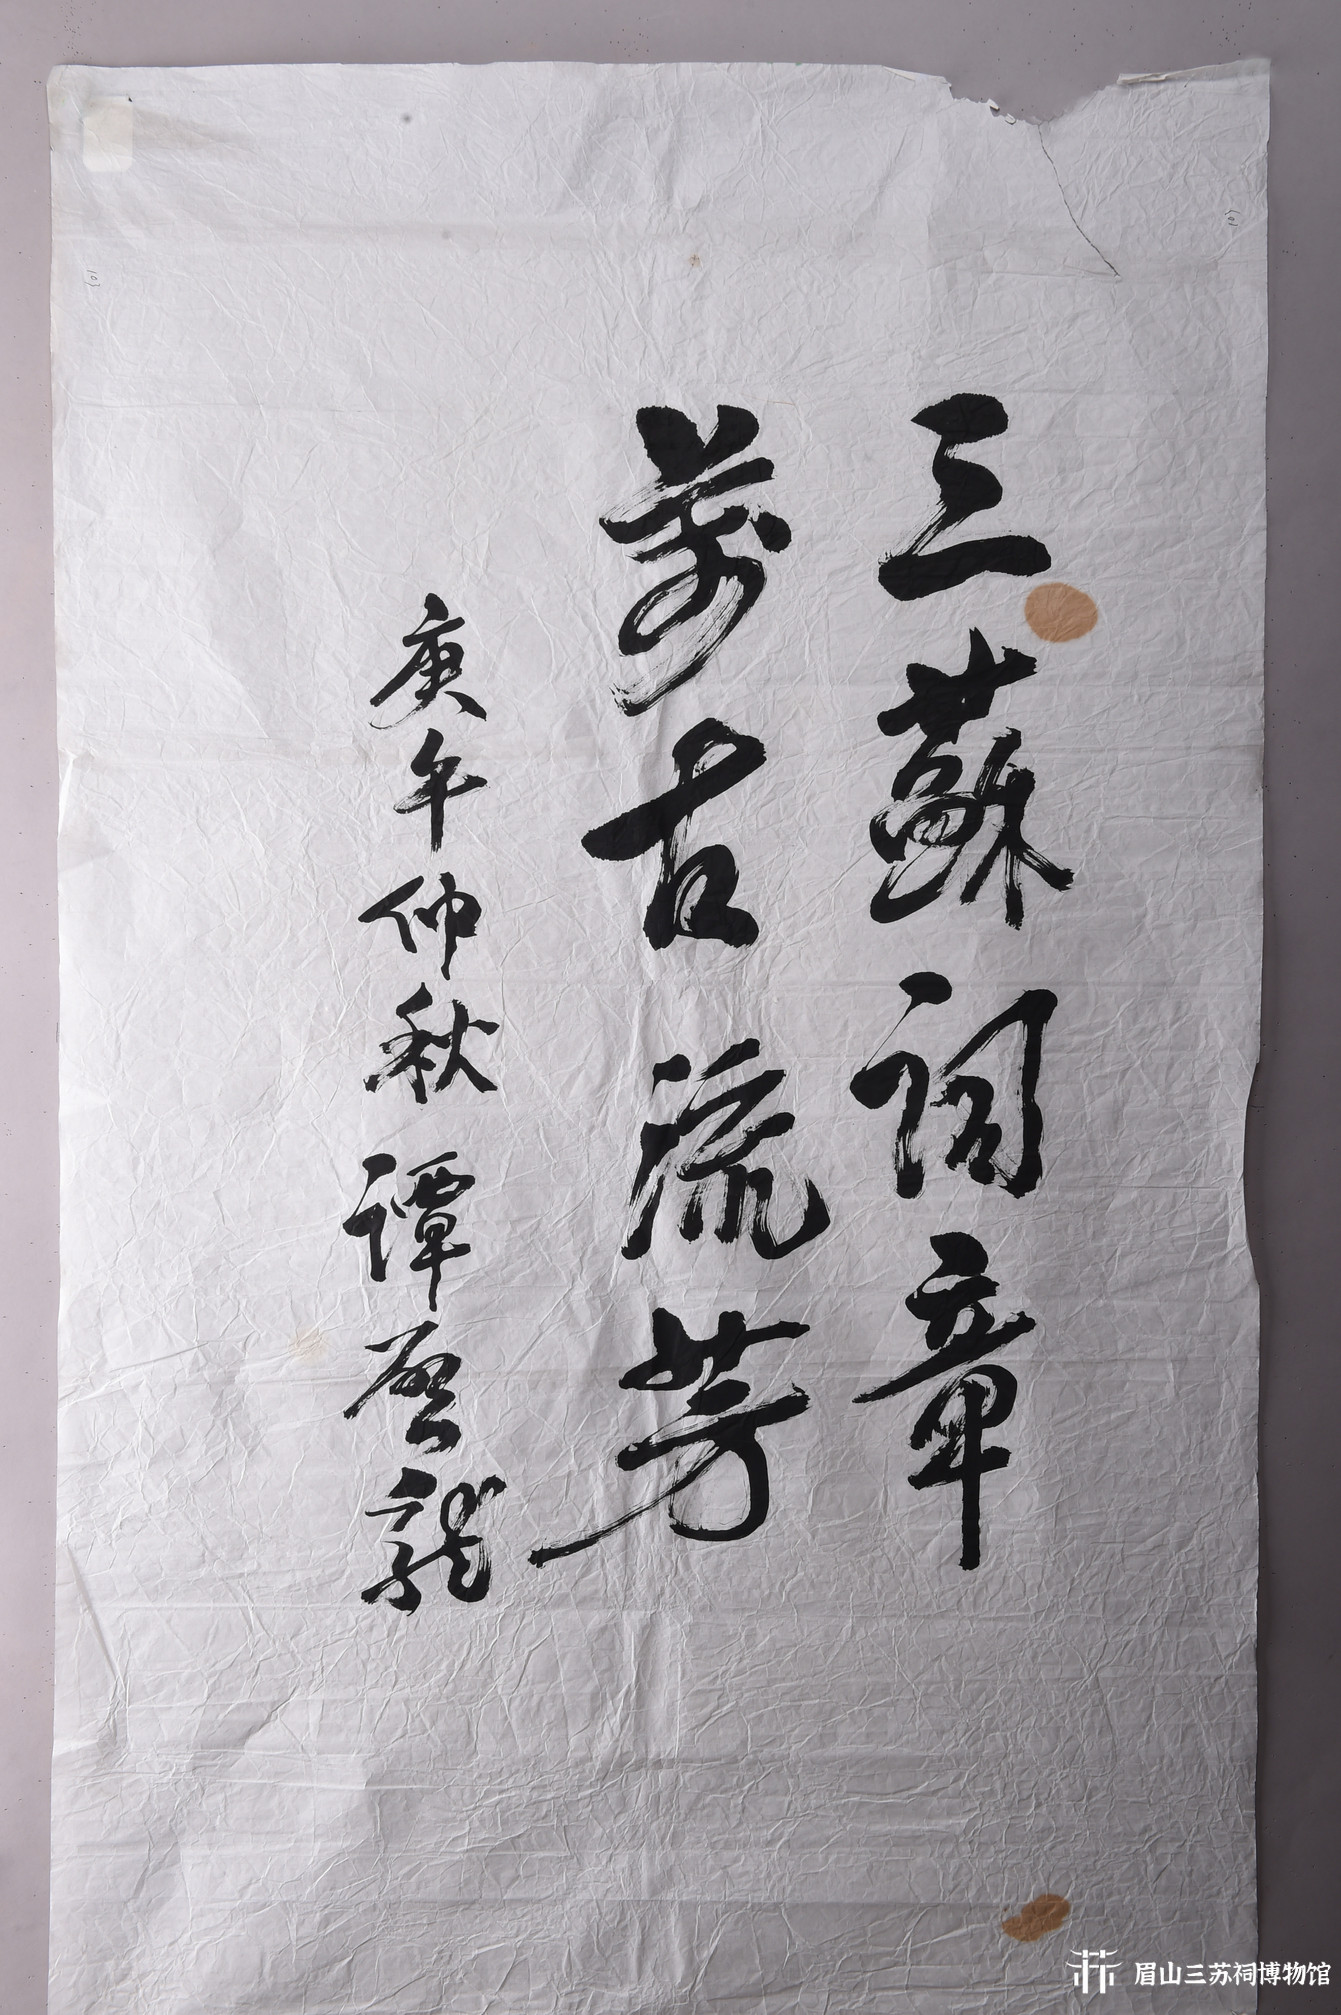 三蘇詞章
萬古流芳
庚午仲秋 譚啓龍
101
101
眉山三苏祠博物馆